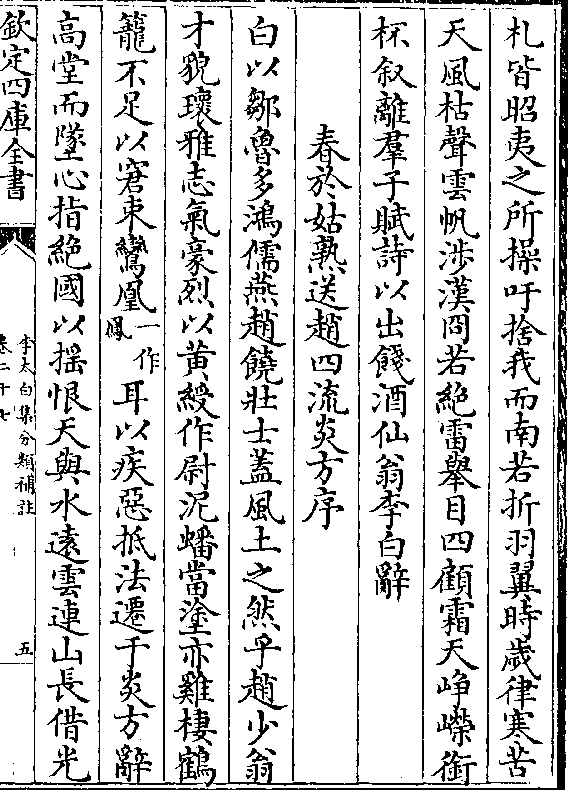 札皆昭夷之所操吁捨我而南若折羽翼時歲律寒苦
天風枯聲雲帆涉漢冏若絶雷舉目四顧霜天崢嶸銜
杯叙離羣子賦詩以出餞酒仙翁李白辭
春於姑熟送趙四流炎方序
白以鄒魯多鴻儒燕趙饒壯士蓋風土之然乎趙少翁
才貌瓌雅志氣豪烈以黄綬作尉泥蟠當塗亦雞棲鶴
籠不足以窘束鸞凰一作鳳耳以疾惡抵法遷于炎方辭
高堂而墜心指絶國以揺恨天與水遠雲連山長借光
欽定四庫全書
李太白集分類補註
卷二十七
五